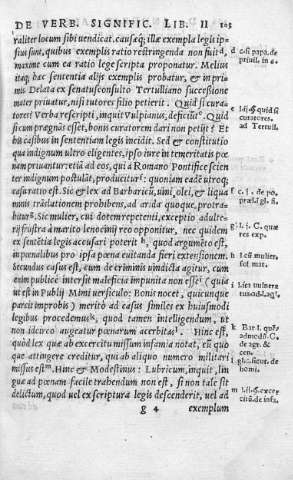 DE VERB. SIGNIFIC. LIB. II 103
raliter locum sibi uendicat. causæq; illæ exempla legis ip
sius sunt, quibus exemplis ratio restringenda non fuit d,
maxime cum ea ratio lege scripta proponatur. Melius
itaq; hæc sententia alijs exemplis probatur, & in pri
mis Delata ex senatusconsulto Tertulliano successione
mater priuatur, nisi tutores filio petierit. Quid si cura
tores? Verba rescripti, inquit Vulpianus, deficiūt e. Quid
si cum prægnās esset, bonis curatorem dari non petijt? Et
his casibus in sententiam legis incidit. Sed & constitutio
quæ indignum ultro eligentes, ipso iure in temeritatis pœ
nam pronuntiari et iā ad eos, qui à Romano Pontifice scien
ter indignum postulāt, producitur: quoniam eadē utroq;
casu ratio est. Sic & lex ad Barbaricū, uini, olei, & liqua
minis trāslationem prohibens, ad arida quoque, protra
hitur g. Sic mulier, cui dotem repetenti, exceptio adulte
rij frustra à marito lenocinij reo opponitur, nec quidem
ex sentētia legis accusari poterit h, quod argumēto est,
in pœnalibus pro ipsa pœna euitanda fieri extensionem.
Secundus casus est, cum de criminis uindicta agitur, cum
enim publicè intersit maleficia impunita non esse i (quia
ut est in Publij Mimi uersiculo: Bonis nocet, quicunque
parcit improbis) merito ad similes casus ex huiusmodi
legibus procedemus k, quod tamen intelligendum, ut
non idcirco augeatur pœnarum acerbitas l. Hinc est,
quod lex quæ ab excercitu missum infamiā notat, eū quo
que attingere creditur, qui ab aliquo numero militari
missus est m. Hinc & Modestinus: Lubricum, inquit, lin
guæ ad pœnam facile trahendum non est, si non tale sit
delictum, quod uel ex scriptura legis descenderit, uel ad
g 4 exemplum
d
e
curatores.
ad Tertull.
res exp.
h
fot. mat.
i
k
de agr. &
cen.
l
homi.
m